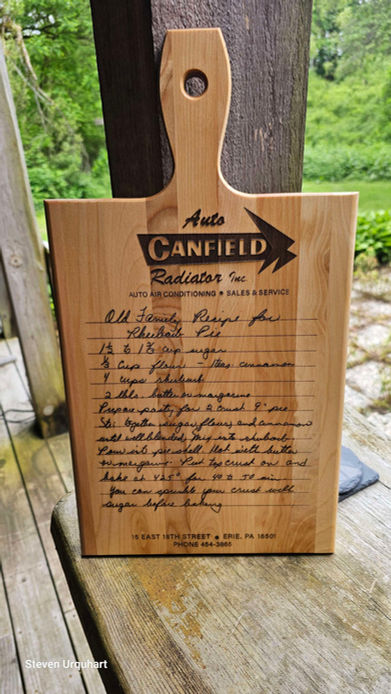 Auto
CANFIELD
Radiator Inc
AUTO AIR CONDITIONING • SALES & SERVICE
Old Family Recipe for
Rheubarb Pie
1½ to 1⅔ cup sugar
⅓ Cup flour - 1 tsp. cinnamon
4 cups rhubarb
2 tbls. butter or margarine
Prepare pastry for 2 crust 9" pie
Stir together sugar, flour, and cinnamon
until well blended. Mix into rhubarb
Pour into pie shell. Dot with butter
or margarine. Put top crust on and
bake at 425° for 40 to 50 min.
You can sprinkle your crust with
sugar before baking
15 EAST 18TH STREET • ERIE, PA 16501
PHONE 454-3865
Steven Urquhart